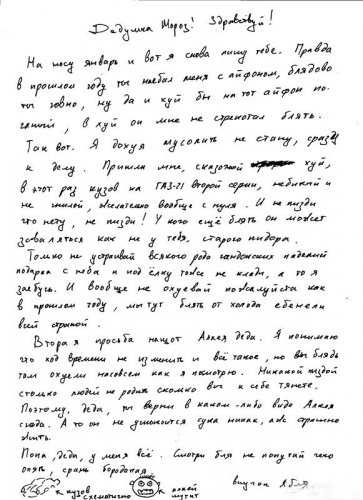 Дедушка Мороз! Здравствуй!
На носу январь и вот я снова пишу тебе. Правда
в прошлом году ты наебал меня с айфоном, блядово
ты говно, ну да и хуй бы на тот айфон по-
ганый, в хуй он мне не стрекотал блять.
Так вот. Я дохуя мусолить не стану, сразу
к делу. Пришли мне, сказочной хуй,
в этот раз кузов на ГАЗ-21 второй серии, небитый и
не гнилой, желательно вообще с нуля. И не пизди
что нету, не пизди! У кого ещё блять он может
заваляться как не у тебя, старого пидора.
Только не устраивай всякого рода гандонских падений
подарка с неба и под ёлку тоже не клади, а то я
заебусь. И вообще не охуевай пожалуйста как
в прошлом году, мы тут блять от холода ебенели
всей страной.
Вторая просьба нащот Алкея деда. Я понимаю
что ход времени не изменить и всё такое, но вы блядь
там охуели насовсем как я посмотрю. Никакой пиздой
столько людей не родить сколько вы к себе тянете.
Поэтому, деда, ты верни в каком-либо виде Алкея
сюда. А то он не угомонится сука никак, аж страшно
жить.
Пока, деда, у меня всё. Смотри бля не попутай чего
опять, срань бородатая.
к кузов схематично к алкей шутит внучок